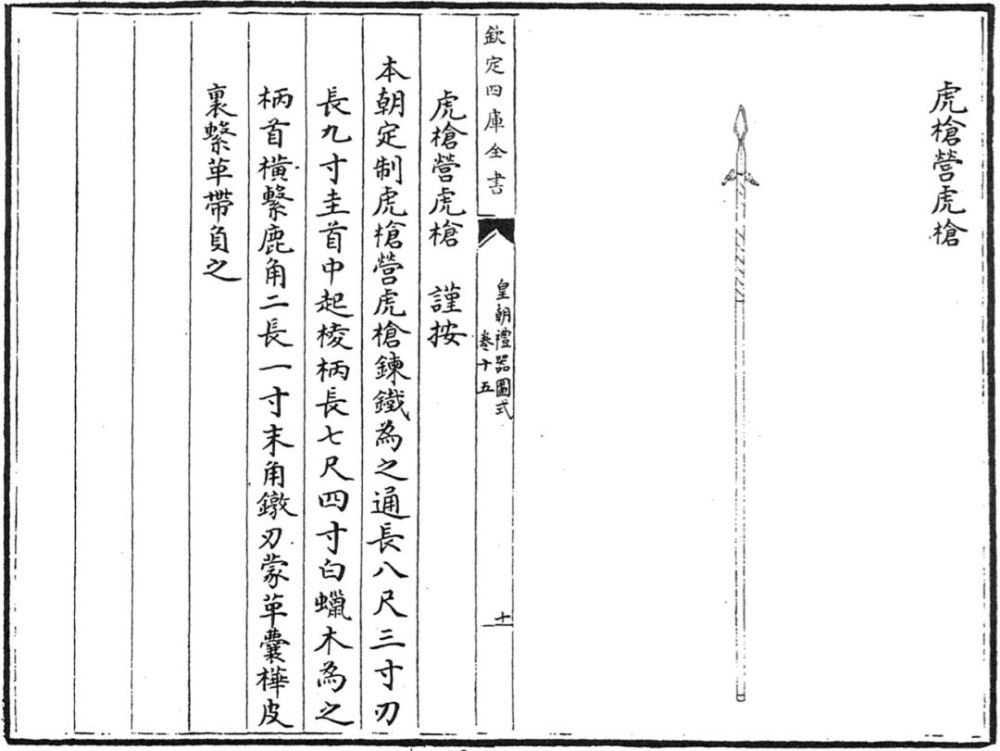 虎槍營虎槍
欽定四庫全書
皇朝禮器圖式
卷十五
十
虎槍營虎槍 謹按
本朝定制虎槍營虎槍鍊鐵為之通長八尺三寸刃
長九寸圭首中起棱柄長七尺四寸白蠟木為之
柄首橫繫鹿角二長一寸末角鐓刃蒙革囊樺皮
裏繫革帶負之